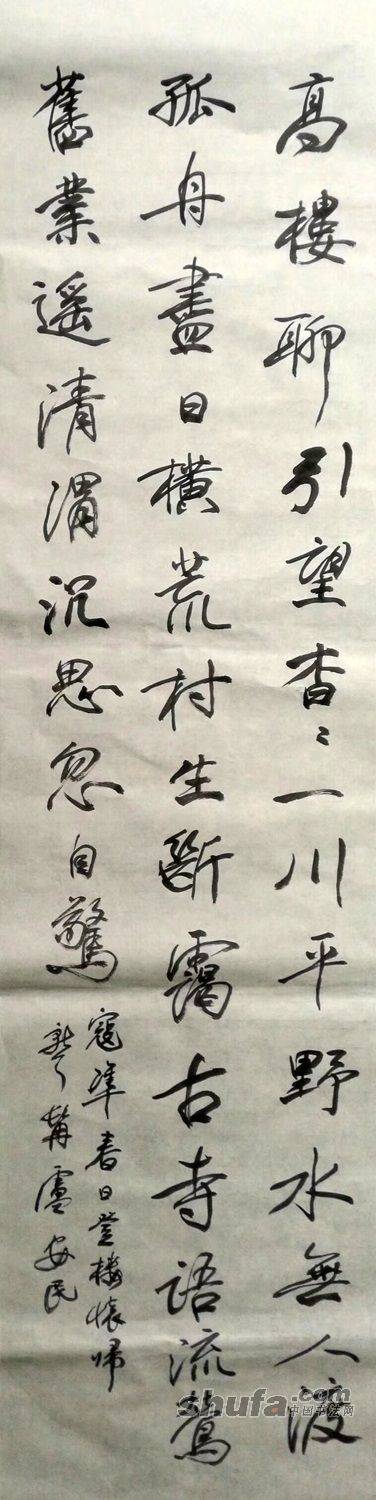 高樓聊引望杳々一川平野水無人渡
孤舟盡日橫荒村生斷靄古寺語流鶯
舊業遙清渭沉思忽自驚
寇準春日登樓懷歸
盧安民
shufa.com
中国书法网